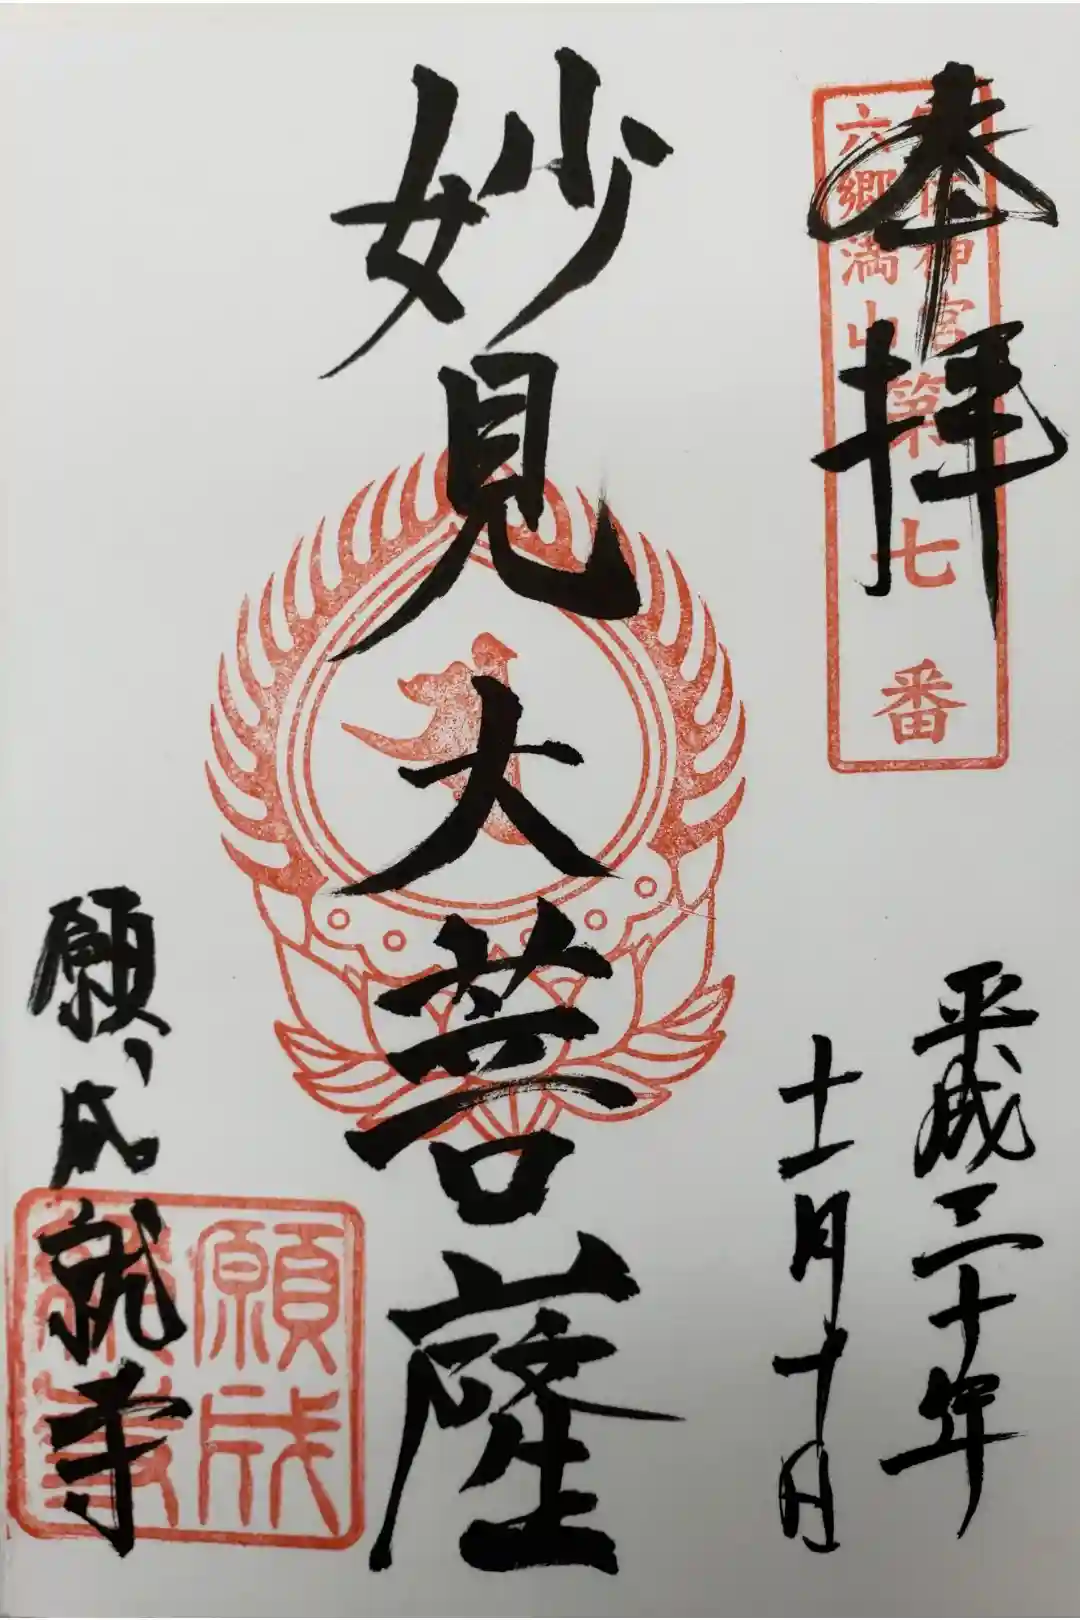 奉拝
宇佐神宮
六郷満山
第七番
平成三十年
十一月十日
妙見大菩薩
願成就寺
願成
就寺